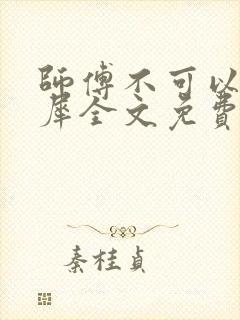 師傅不可以
犀全文免費
秦桂貞